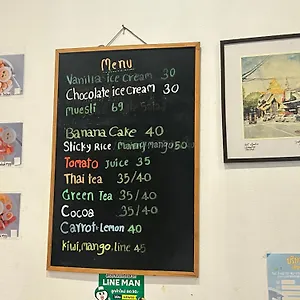 Menu
Vanilla ice cream 30
Chocolate ice cream 30
muesli 69
Banana Cake 40
Sticky Rice / Mamy mango 50
Tomato Juice 35
Thai tea 35/40
Green Tea 35/40
Cocoa 35/40
Carrot + Lemon 40
Kiwi, mango, lime 45
LINE MAN